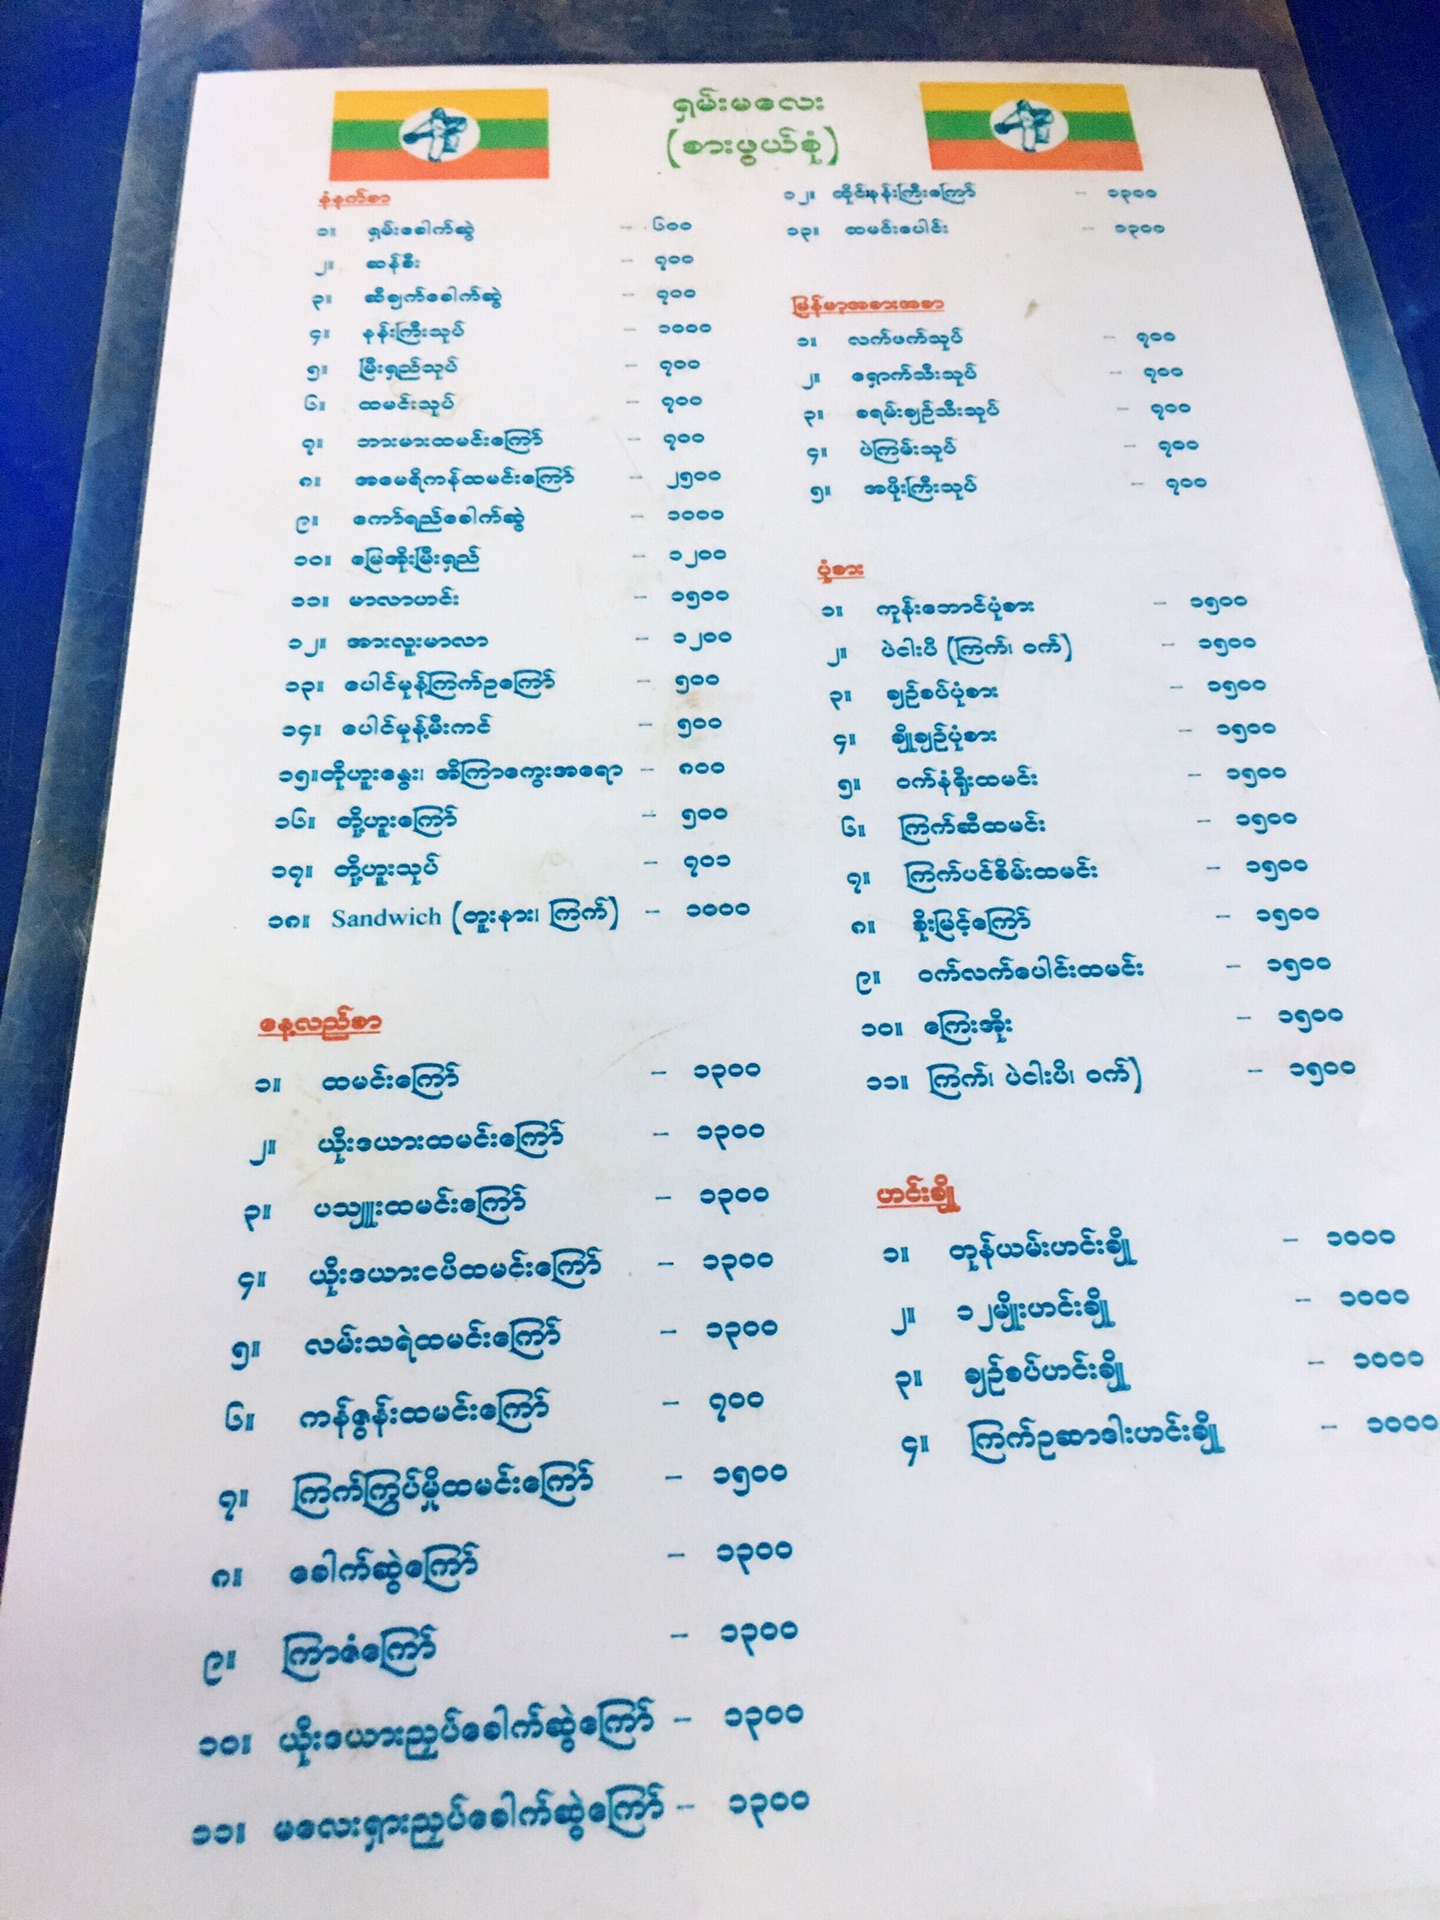 ရှမ်းမလေး
(စားဖွယ်စုံ)
နံနက်စာ
၁။ ရှမ်းခေါက်ဆွဲ – ၆၀၀
၂။ ဆန်စီး – ၇၀၀
၃။ ဆီချက်ခေါက်ဆွဲ – ၇၀၀
၄။ နန်းကြီးသုပ် – ၁၀၀၀
၅။ မြီးရှည်သုပ် – ၇၀၀
၆။ ထမင်းသုပ် – ၇၀၀
၇။ ဘားမားထမင်းကြော် – ၇၀၀
၈။ အမေရိကန်ထမင်းကြော် – ၂၅၀၀
၉။ ကော်ရည်ခေါက်ဆွဲ – ၁၀၀၀
၁၀။ မြေအိုးမြီးရှည် – ၁၂၀၀
၁၁။ မာလာဟင်း – ၁၅၀၀
၁၂။ အားလူးမာလာ – ၁၂၀၀
၁၃။ ပေါင်မုန့်ကြက်ဥကြော် – ၅၀၀
၁၄။ ပေါင်မုန့်မီးကင် – ၅၀၀
၁၅။တိုဟူးနွေး၊ အီကြာကွေးအရော – ၈၀၀
၁၆။ တို့ဟူးကြော် – ၅၀၀
၁၇။ တို့ဟူးသုပ် – ၇၀၁
၁၈။ Sandwich (တူးနား၊ ကြက်) – ၁၀၀၀
နေ့လည်စာ
၁။ ထမင်းကြော် – ၁၃၀၀
၂။ ယိုးဒယားထမင်းကြော် – ၁၃၀၀
၃။ ပသျှူးထမင်းကြော် – ၁၃၀၀
၄။ ယိုးဒယားငပိထမင်းကြော် – ၁၃၀၀
၅။ လမ်းသရဲထမင်းကြော် – ၁၃၀၀
၆။ ကန်ဇွန်းထမင်းကြော် – ၇၀၀
၇။ ကြက်ကြွပ်မှိုထမင်းကြော် – ၁၅၀၀
၈။ ခေါက်ဆွဲကြော် – ၁၃၀၀
၉။ ကြာဇံကြော် – ၁၃၀၀
၁၀။ ယိုးဒယားညှပ်ခေါက်ဆွဲကြော် – ၁၃၀၀
၁၁။ မလေးရှားညှပ်ခေါက်ဆွဲကြော် – ၁၃၀၀
၁၂။ ထိုင်နန်းကြီးကြော် – ၁၃၀၀
၁၃။ ထမင်းပေါင်း – ၁၃၀၀
မြန်မာ့အစားအစာ
၁။ လက်ဖက်သုပ် – ၇၀၀
၂။ ရှောက်သီးသုပ် – ၇၀၀
၃။ ခရမ်းချဉ်သီးသုပ် – ၇၀၀
၄။ ပဲကြမ်းသုပ် – ၇၀၀
၅။ အဖိုးကြီးသုပ် – ၇၀၀
ပုံစား
၁။ ကုန်းဘောင်ပုံစား – ၁၅၀၀
၂။ ပဲငါးပိ (ကြက်၊ ဝက်) – ၁၅၀၀
၃။ ချဉ်စပ်ပုံစား – ၁၅၀၀
၄။ ချိုချဉ်ပုံစား – ၁၅၀၀
၅။ ဝက်နံရိုးထမင်း – ၁၅၀၀
၆။ ကြက်ဆီထမင်း – ၁၅၀၀
၇။ ကြက်ပင်စိမ်းထမင်း – ၁၅၀၀
၈။ စိုးမြင့်ကြော် – ၁၅၀၀
၉။ ဝက်လက်ပေါင်းထမင်း – ၁၅၀၀
၁၀။ ကြေးအိုး – ၁၅၀၀
၁၁။ ကြက်၊ ပဲငါးပိ၊ ဝက်) – ၁၅၀၀
ဟင်းချို
၁။ တုန်ယမ်းဟင်းချို – ၁၀၀၀
၂။ ၁၂မျိုးဟင်းချို – ၁၀၀၀
၃။ ချဉ်စပ်ဟင်းချို – ၁၀၀၀
၄။ ကြက်ဥဆာဒါးဟင်းချို – ၁၀၀၀